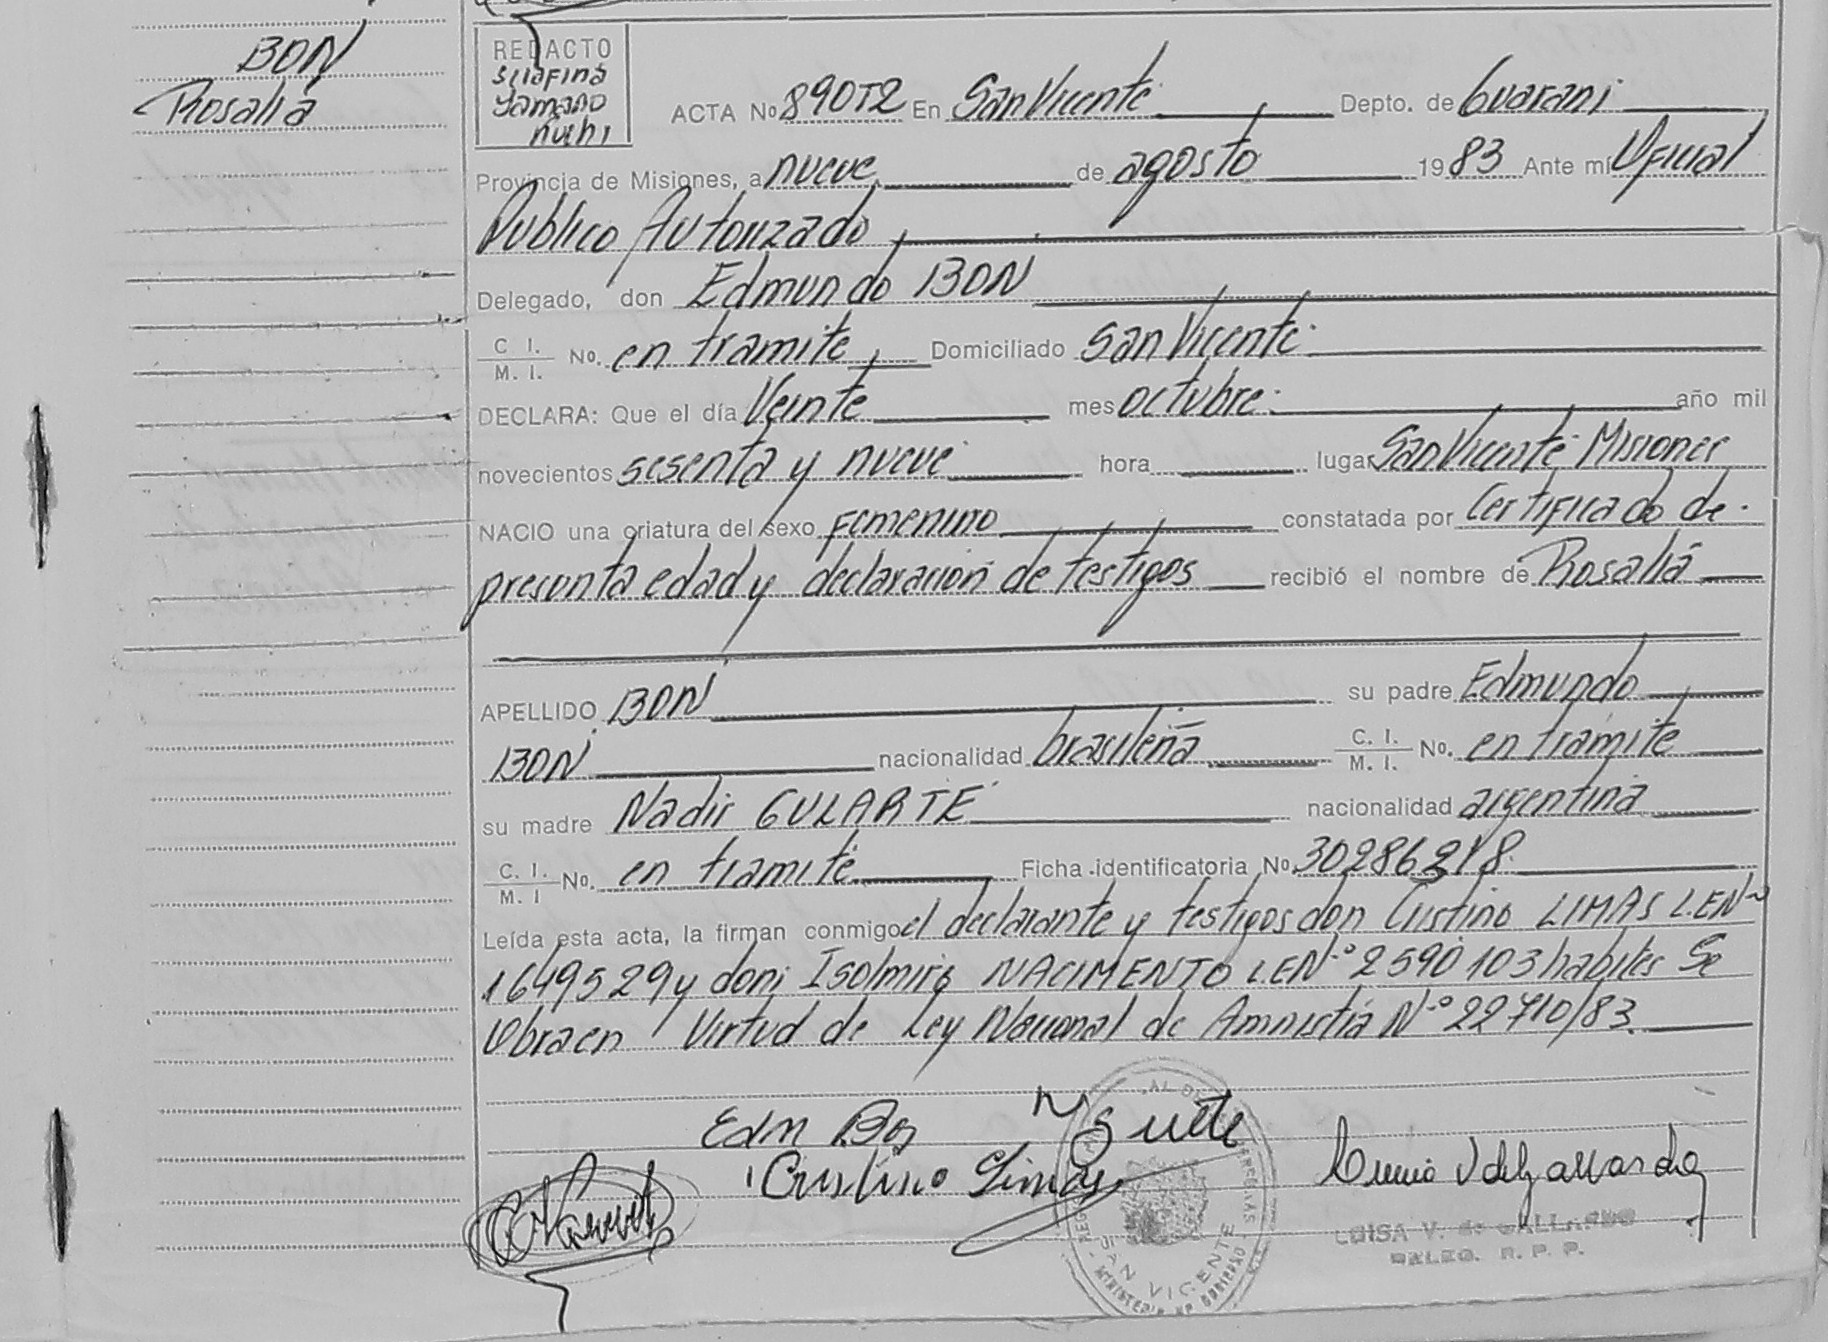 BON
Rosalia
REDACTO
ACTA No 890T2 En San Vicente Depto. de Guarani
Provincia de Misiones, a nueve de agosto 1983 Ante mí Oficial
Publico Autorizado
Delegado, don Edmundo BON
C. I. / M. I. No. en tramite Domiciliado San Vicente
DECLARA: Que el día Veinte mes octubre año mil
novecientos sesenta y nueve hora lugar San Vicente Misiones
NACIO una criatura del sexo Femenino constatada por Certificado de
presunta edad y declaracion de testigos recibió el nombre de Rosalia
APELLIDO BON su padre Edmundo
BON nacionalidad brasileña C. I. / M. I. No. en tramite
su madre Nadir GULARTE nacionalidad argentina
C. I. / M. I No. en tramite Ficha identificatoria No. 30286218
Leída esta acta, la firman conmigo el declarante y testigos don Cristino LIMAS L.E Nº
1649529 y don Isolmiro NACIMENTO L.E Nº 2590103 habiles Se
Obra en Virtud de Ley Nacional de Amnistia Nº 22710/83.
Edm Bon
Cristino Limas
SAN VICENTE
LUISA V. de GALLARDO
DELEG. R. P. P.